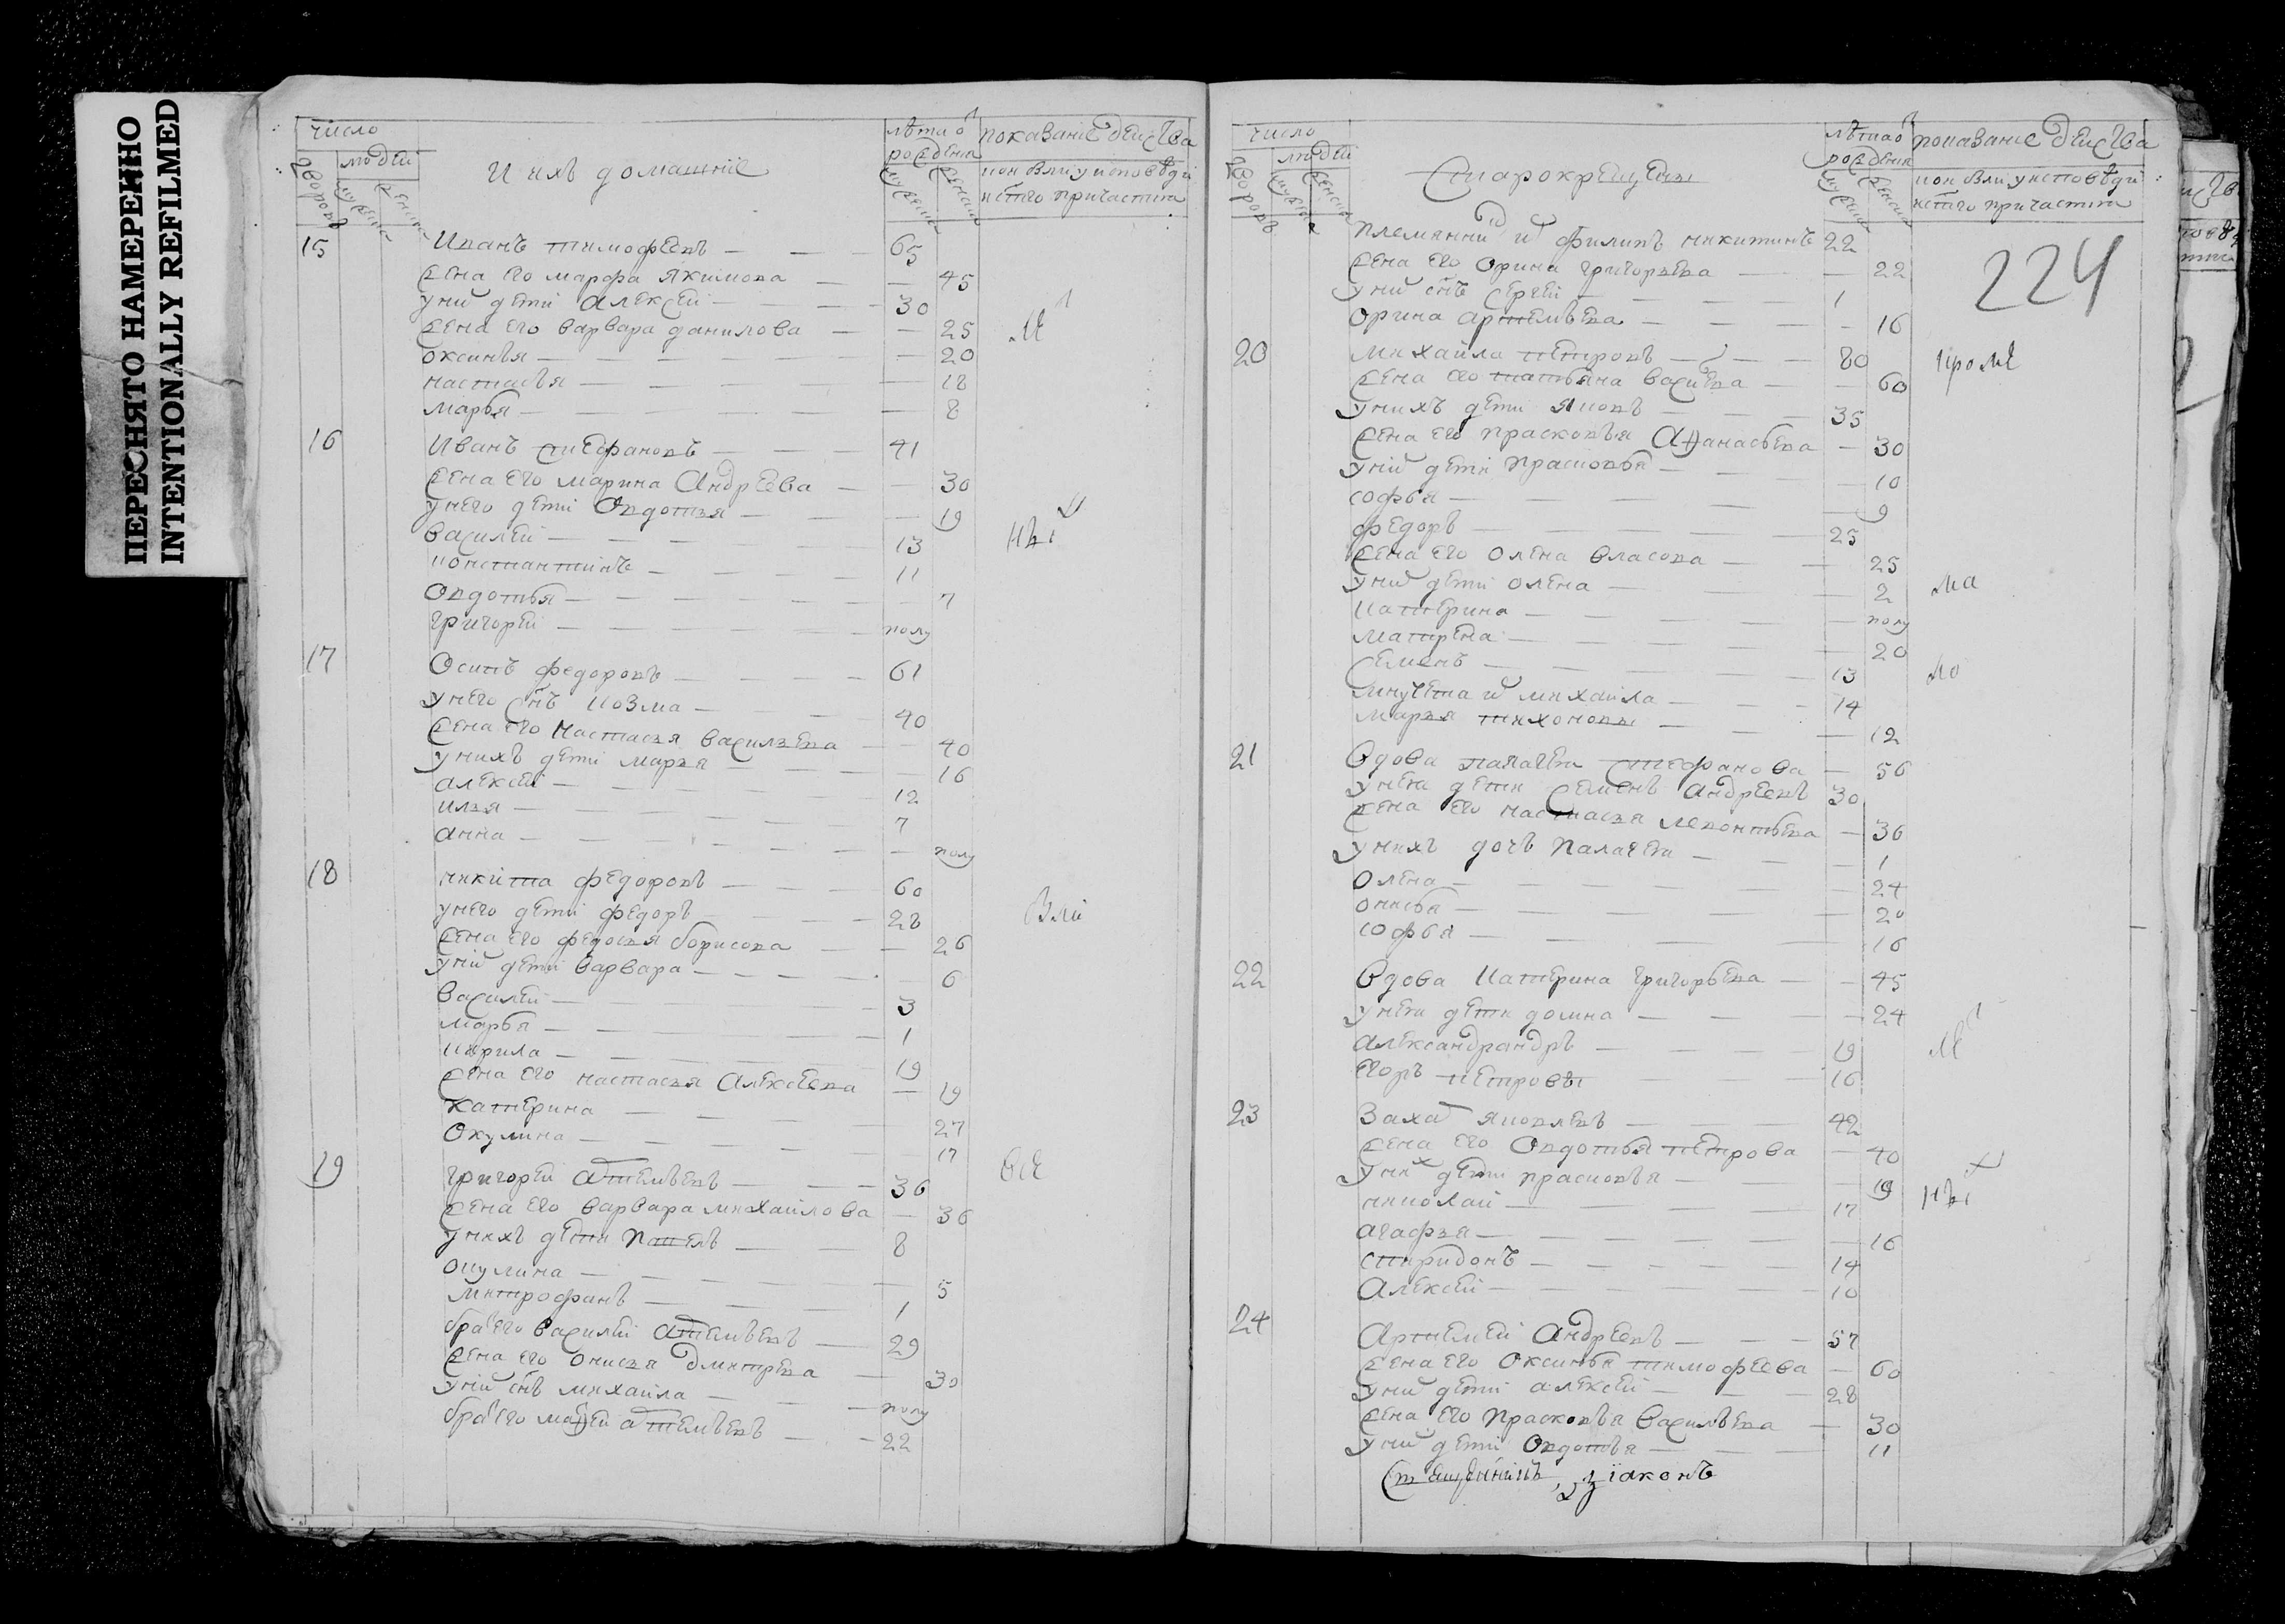 ПЕРЕСНЯТО НАМЕРЕННО
INTENTIONALLY REFILMED
число
людей
дворовъ
мужеска
женска
И ихъ домашние
лѣта о рожденія
мужеска
женска
показание действа
кои были у исповѣди
и с҃таго причастия
15 Иванъ тимофѣевъ 65
жена его марфа якимова 45
у ни дети Алексей 30
жена его варвара данилова 25
оксинья 20
настасья 18
марья 8
16 Иванъ стефановъ 41
жена его марина Андреева 30
у него дети Овдотья 19
василей 13
константинъ 11
Овдотья 7
григорей полу
17 Осипъ федоровъ 61
у него сн҃ъ козма 40
жена его настасья василева 40
у нихъ дети марья 16
алексей 12
илья 7
анна полу
18 никита федоровъ 60
у него дети федоръ 28
жена его федосья борисова 26
у ни дети варвара 6
василей 3
марья 1
кирила 19
жена его настасья Алексеева 19
катерина 27
Окулина 17
19 григорей атемьевъ 36
жена его варвара михайлова 36
у нихъ дети павелъ 8
окулина 5
митрофанъ 1
бра его василей атемьевъ 29
жена его онисья дмитрева 30
у ни сн҃ъ михаила полу
бра его матфей атемьевъ 22
число
людей
дворовъ
мужеска
женска
старокрещены
лѣта о рожденія
мужеска
женска
показание действа
кои были у исповѣди
и с҃таго причастия
224
племянни и филипъ никитинъ 22
жена его орина григорьева 22
у ни сн҃ъ сергей 1
орина артемьева 16
20 михайла петровъ 80
кроме
жена его татьяна василева 60
у нихъ дети яковъ 35
жена его прасковья Афанасьева 30
у ни дети прасковья 10
софья 9
федоръ 25
жена его олена власова 25
у ни дети олена 2
катерина полу
матрена 20
семенъ 13
внучета и михаила 14
марья тихоновы 12
21 вдова палагея стефанова 56
у нея дети семенъ андреевъ 30
жена его настасья леонтьева 36
у нихъ дочь палагея 1
олена 24
онисья 20
софья 16
22 вдова катерина григорьева 45
у нея дети домна 24
александрандръ 19
егоръ петровы 16
23 Заха яковлевъ 42
жена его Овдотья петрова 40
у них дети прасковья 19
николай 17
агафья 16
спиридонъ 14
Алексей 10
24 Артемей Андреевъ 57
жена его Оксинья тимофеева 60
у ни дети алексей 28
жена его прасковья василева 30
у ни дети Овдотья 11
діаконъ